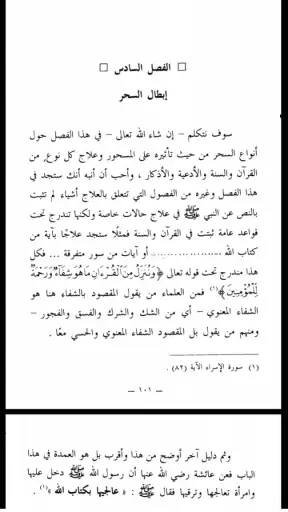 □ الفصل السادس □
إبطال السحر
سوف نتكلم – إن شاء الله تعالى – في هذا الفصل حول
أنواع السحر من حيث تأثيره على المسحور وعلاج كل نوع من
القرآن والسنة والأدعية والأذكار ، وأحب أن أنبه أنك ستجد في
هذا الفصل وغيره من الفصول التي تتعلق بالعلاج أشياء لم تثبت
بالنص عن النبي ﷺ في علاج حالات خاصة ولكنها تندرج تحت
قواعد عامة ثبتت في القرآن والسنة فمثلًا ستجد علاجًا بآية من
كتاب الله .................... أو آيات من سور متفرقة ... فكل
هذا مندرج تحت قوله تعالى ﴿وَنُنَزِّلُ مِنَ ٱلْقُرْءَانِ مَا هُوَ شِفَآءٌ وَرَحْمَةٌ
لِّلْمُؤْمِنِينَ﴾(١) فمن العلماء من يقول المقصود بالشفاء هنا هو
الشفاء المعنوي – أي من الشك والشرك والفسق والفجور –
ومنهم من يقول بل المقصود الشفاء المعنوي والحسي معًا .
(١) سورة الإسراء الآية (٨٢) .
– ١٠١ –
وثم دليل آخر أوضح من هذا وأقرب بل هو العمدة في هذا
الباب فعن عائشة رضي الله عنها أن رسول الله ﷺ دخل عليها
وامرأة تعالجها وترقيها فقال ﷺ : « عالجيها بكتاب الله »(١) .